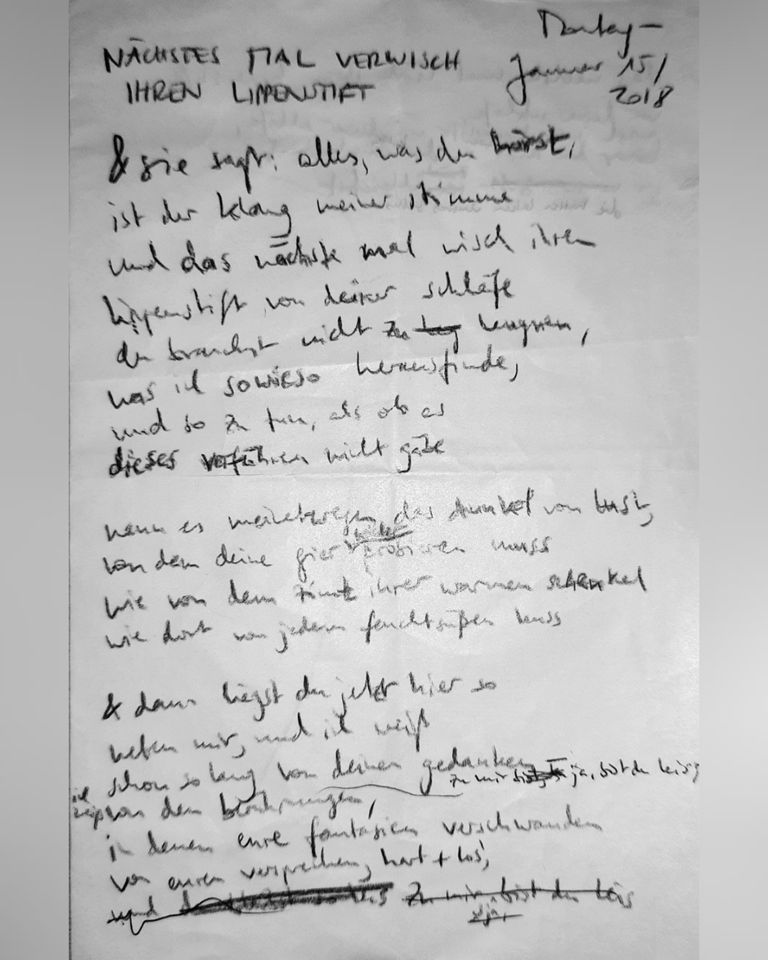 Montag –
Januar 15/
2018
NÄCHSTES MAL VERWISCH
IHREN LIPPENSTIFT
& sie sagt: alles, was du hörst,
ist der klang meiner stimme
und das nächste mal wisch ihren
lippenstift von deiner schläfe
du brauchst nicht zu leugnen,
was ich sowieso herausfinde,
und so zu tun, als ob es
dieses verführen nicht gäbe
wenn es meinetwegen das dunkel von lust,
von dem deine gier probieren muss
wie von dem zimt ihrer warmen schenkel
wie dort von jedem feuchtsüßen kuss
& dann liegst du jetzt hier so
neben mir, und ich weiß
schon so lang von deinen gedanken
zu mir ja, bist du leis
ich weiß von den berührungen,
in denen eure fantasien verschwanden
von euren versprechen, hart + los,
und zu mir bist du leis
ja,